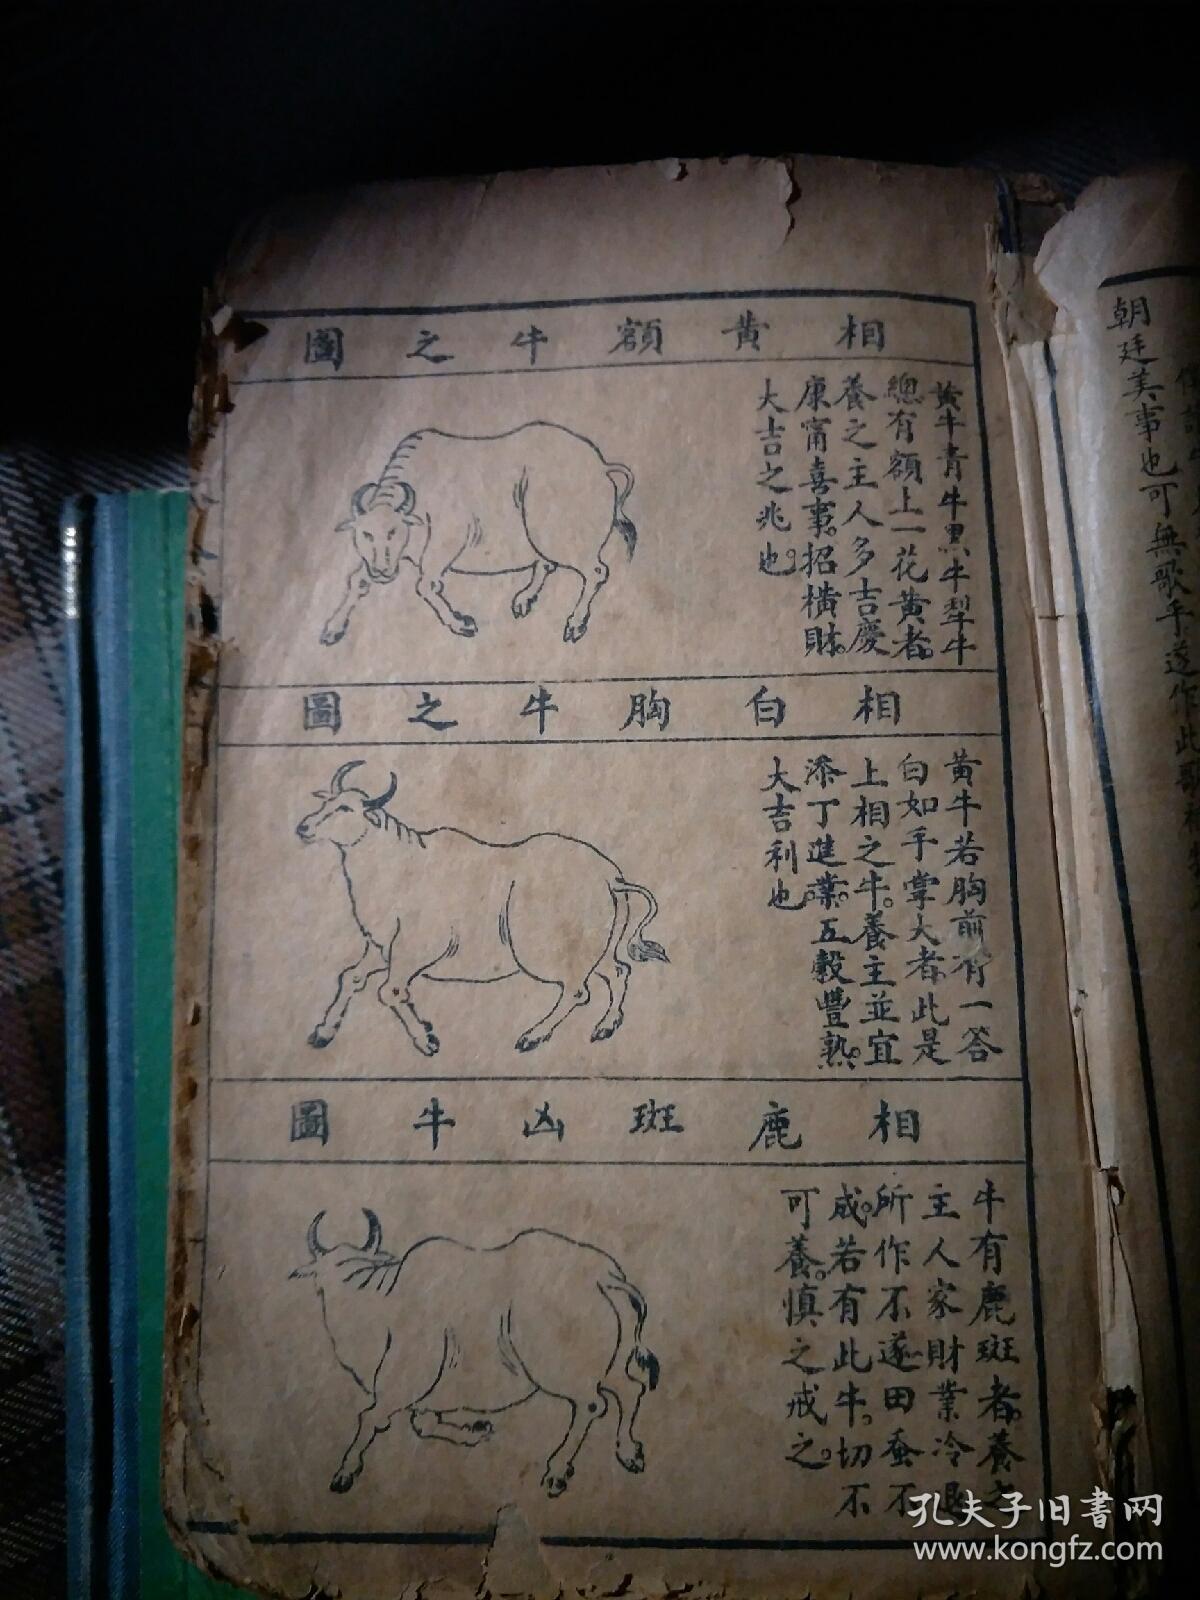 朝廷美事也可無歌乎遂作此歌
相黃額牛之圖
黃牛青牛黑牛犁牛
總有額上一花黃者。
養之主人多吉慶
康甯喜事。招橫財。
大吉之兆也。
相白胸牛之圖
黃牛若胸前有一答
白如手掌大者。此是
上相之牛。養主並宜
添丁進業。五穀豐熟。
大吉利也
相鹿斑凶牛圖
牛有鹿斑者。養之
主人家財業冷退
所作不遂田蚕不
成。若有此牛。切不
可養。慎之戒之。
孔夫子旧書网
www.kongfz.com